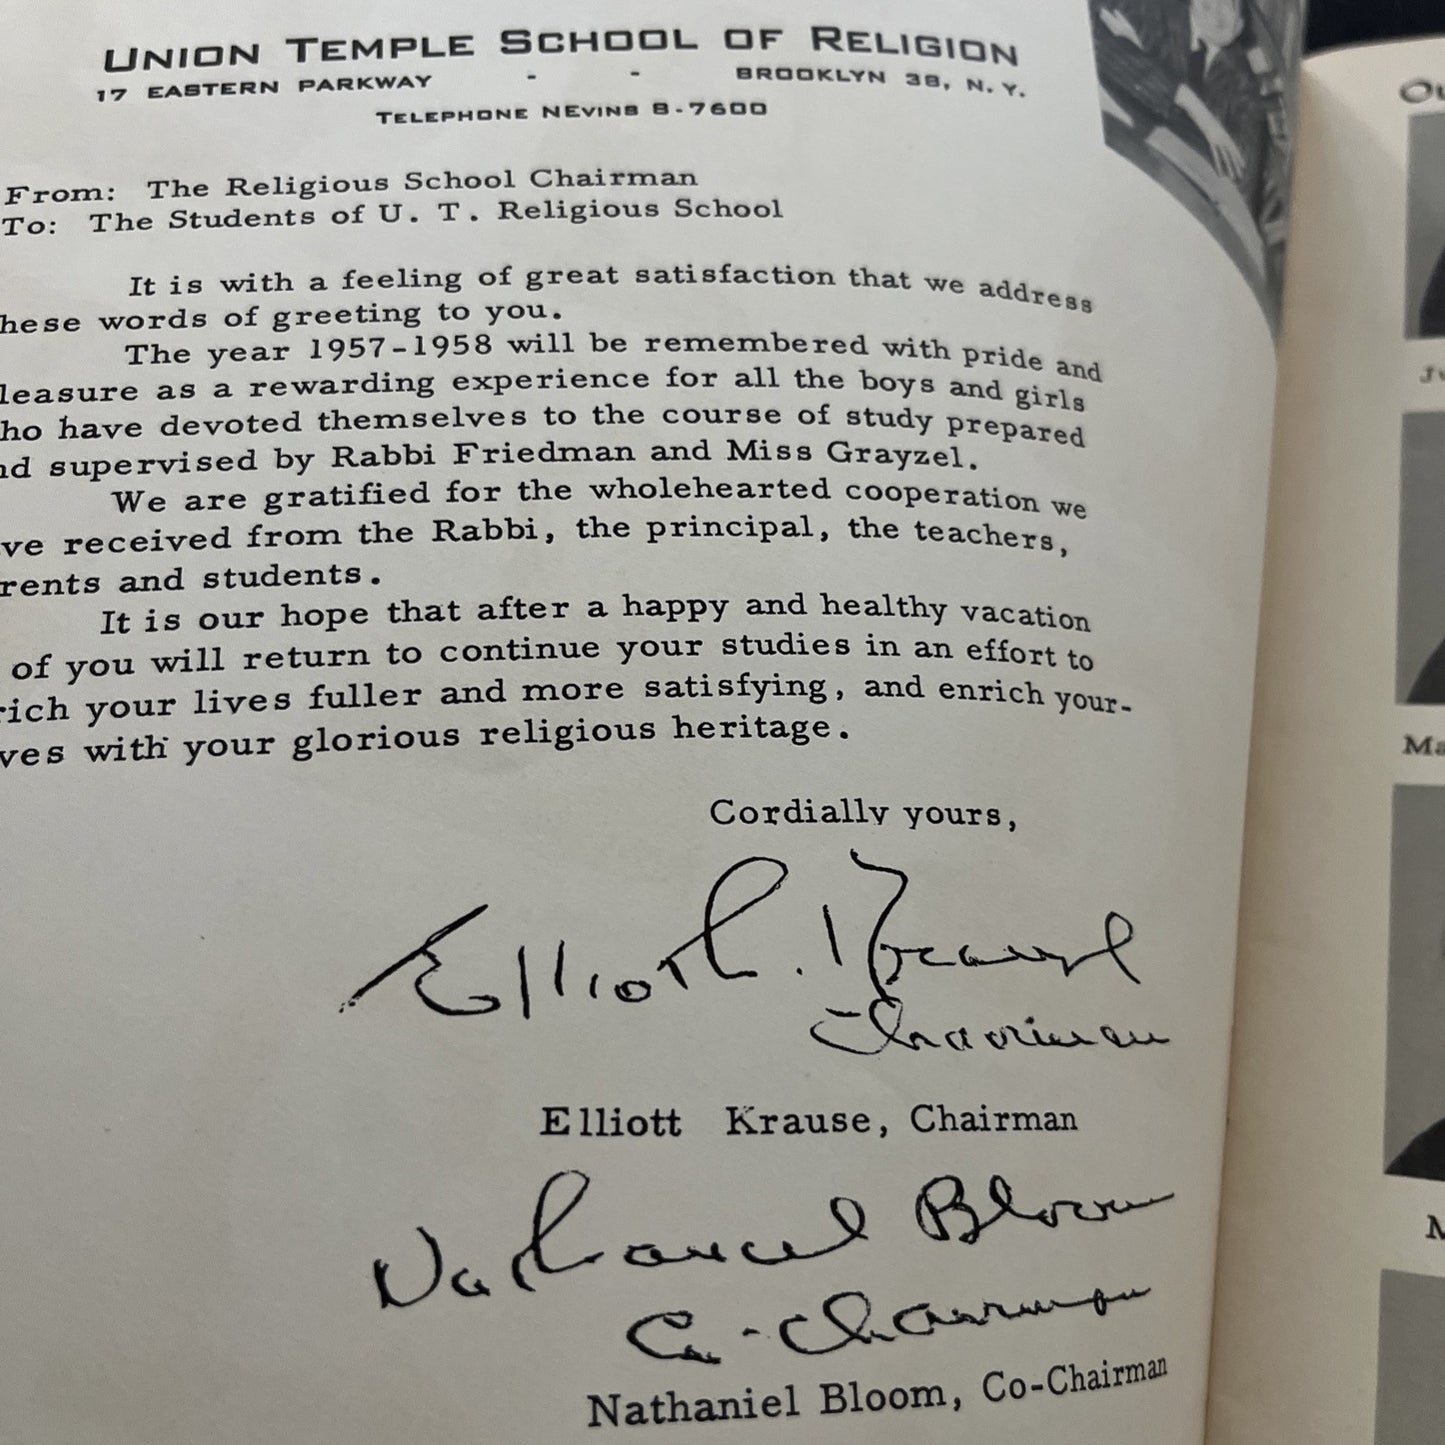 UNION TEMPLE SCHOOL OF RELIGION
17 EASTERN PARKWAY - - BROOKLYN 38, N. Y.
TELEPHONE NEVINS 8-7600
From: The Religious School Chairman
To: The Students of U. T. Religious School
It is with a feeling of great satisfaction that we address
hese words of greeting to you.
The year 1957-1958 will be remembered with pride and
leasure as a rewarding experience for all the boys and girls
ho have devoted themselves to the course of study prepared
nd supervised by Rabbi Friedman and Miss Grayzel.
We are gratified for the wholehearted cooperation we
ve received from the Rabbi, the principal, the teachers,
rents and students.
It is our hope that after a happy and healthy vacation
of you will return to continue your studies in an effort to
rich your lives fuller and more satisfying, and enrich your-
ves with your glorious religious heritage.
Cordially yours,
Elliott Krause
Chairman
Elliott Krause, Chairman
Nathaniel Bloom
Co-Chairman
Nathaniel Bloom, Co-Chairman
Ou
Ma